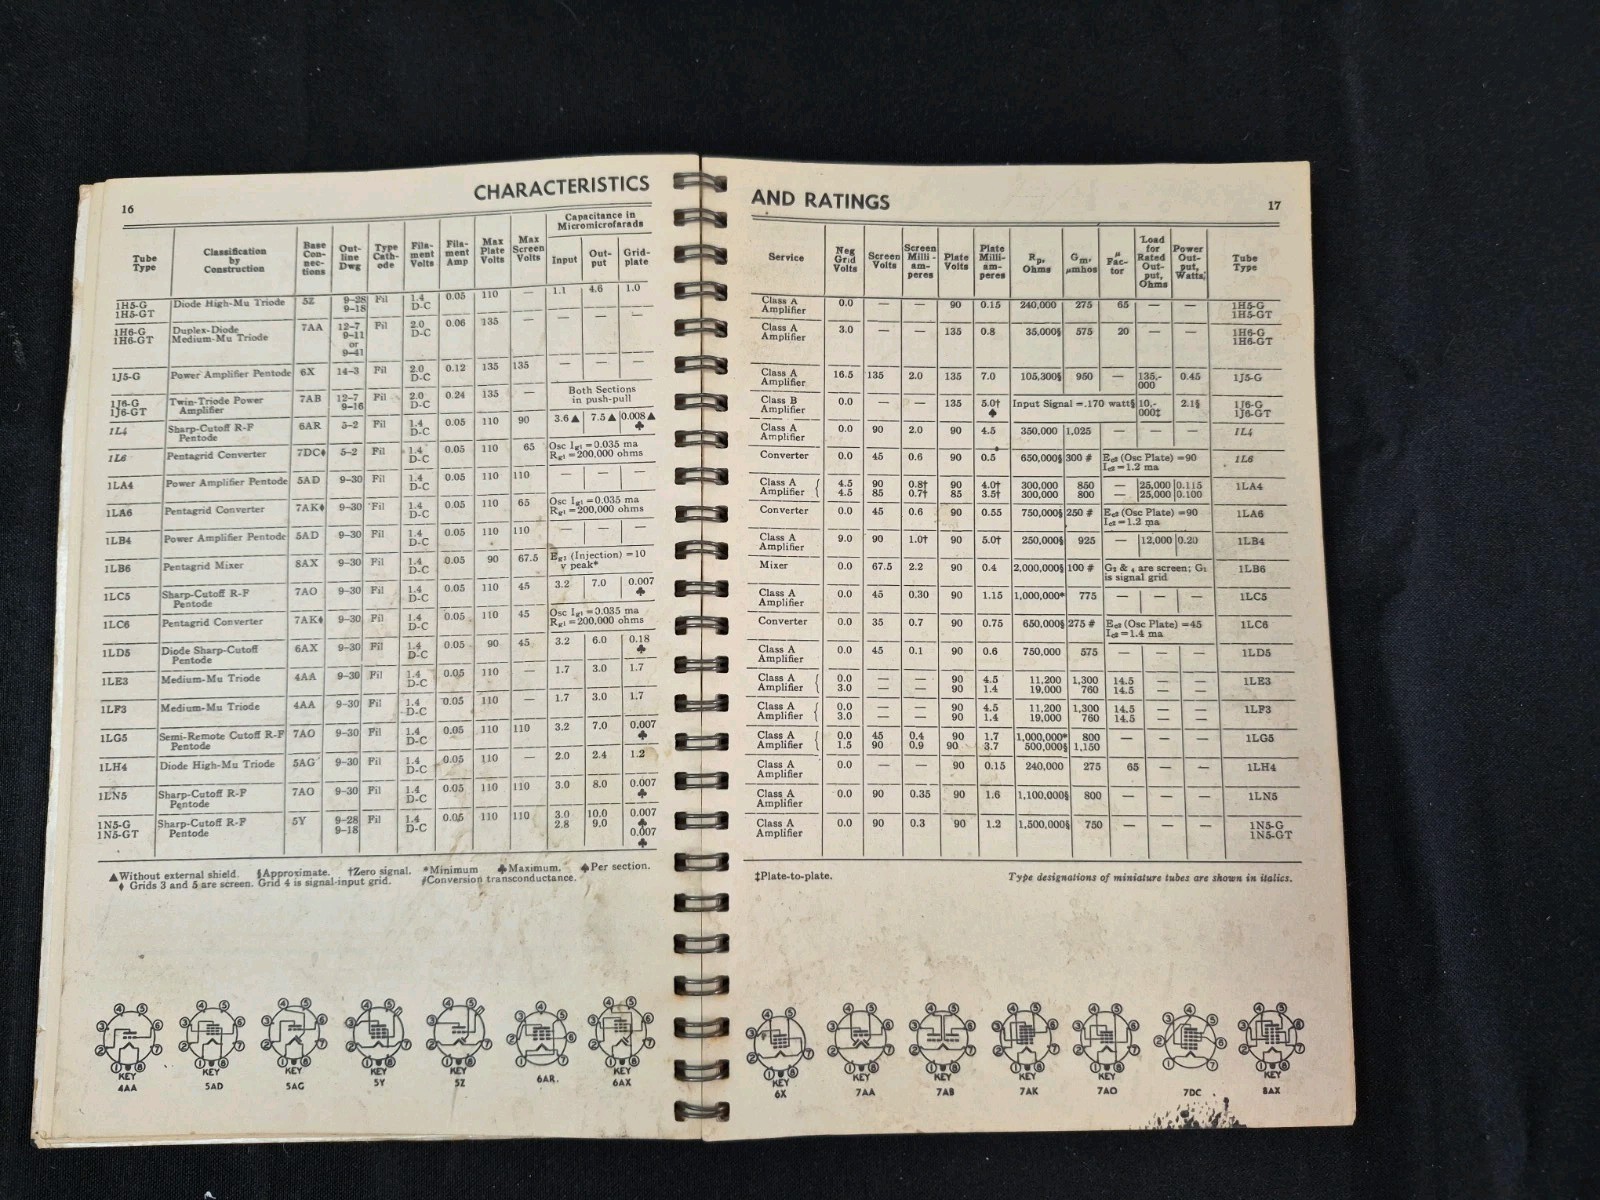 16
CHARACTERISTICS
Tube Type | Classification by Construction | Base Connec-tions | Out-line Dwg | Type Cath-ode | Fila-ment Volts | Fila-ment Amp | Max Plate Volts | Max Screen Volts | Capacitance in Micromicrofarads
Input | Out-put | Grid-plate
1H5-G 1H5-GT | Diode High-Mu Triode | 5Z | 9-28 9-18 | Fil | 1.4 D-C | 0.05 | 110 | — | 1.1 | 4.6 | 1.0
1H6-G 1H6-GT | Duplex-Diode Medium-Mu Triode | 7AA | 12-7 9-11 or 9-41 | Fil | 2.0 D-C | 0.06 | 135 | — | — | — | —
1J5-G | Power Amplifier Pentode | 6X | 14-3 | Fil | 2.0 D-C | 0.12 | 135 | 135 | — | — | —
1J6-G 1J6-GT | Twin-Triode Power Amplifier | 7AB | 12-7 9-16 | Fil | 2.0 D-C | 0.24 | 135 | — | Both Sections in push-pull
1L4 | Sharp-Cutoff R-F Pentode | 6AR | 5-2 | Fil | 1.4 D-C | 0.05 | 110 | 90 | 3.6▲ | 7.5▲ | 0.008▲ ♣
1L6 | Pentagrid Converter | 7DC♦ | 5-2 | Fil | 1.4 D-C | 0.05 | 110 | 65 | Osc Ig1=0.035 ma Rg1=200,000 ohms
1LA4 | Power Amplifier Pentode | 5AD | 9-30 | Fil | 1.4 D-C | 0.05 | 110 | 110 | — | — | —
1LA6 | Pentagrid Converter | 7AK♦ | 9-30 | Fil | 1.4 D-C | 0.05 | 110 | 65 | Osc Ig1=0.035 ma Rg1=200,000 ohms
1LB4 | Power Amplifier Pentode | 5AD | 9-30 | Fil | 1.4 D-C | 0.05 | 110 | 110 | — | — | —
1LB6 | Pentagrid Mixer | 8AX | 9-30 | Fil | 1.4 D-C | 0.05 | 90 | 67.5 | Eg1 (Injection)=10 v peak*
1LC5 | Sharp-Cutoff R-F Pentode | 7AO | 9-30 | Fil | 1.4 D-C | 0.05 | 110 | 45 | 3.2 | 7.0 | 0.007 ♣
1LC6 | Pentagrid Converter | 7AK♦ | 9-30 | Fil | 1.4 D-C | 0.05 | 110 | 45 | Osc Ig1=0.035 ma Rg1=200,000 ohms
1LD5 | Diode Sharp-Cutoff Pentode | 6AX | 9-30 | Fil | 1.4 D-C | 0.05 | 90 | 45 | 3.2 | 6.0 | 0.18 ♣
1LE3 | Medium-Mu Triode | 4AA | 9-30 | Fil | 1.4 D-C | 0.05 | 110 | — | 1.7 | 3.0 | 1.7
1LF3 | Medium-Mu Triode | 4AA | 9-30 | Fil | 1.4 D-C | 0.05 | 110 | — | 1.7 | 3.0 | 1.7
1LG5 | Semi-Remote Cutoff R-F Pentode | 7AO | 9-30 | Fil | 1.4 D-C | 0.05 | 110 | 110 | 3.2 | 7.0 | 0.007 ♣
1LH4 | Diode High-Mu Triode | 5AG | 9-30 | Fil | 1.4 D-C | 0.05 | 110 | — | 2.0 | 2.4 | 1.2
1LN5 | Sharp-Cutoff R-F Pentode | 7AO | 9-30 | Fil | 1.4 D-C | 0.05 | 110 | 110 | 3.0 | 8.0 | 0.007 ♣
1N5-G 1N5-GT | Sharp-Cutoff R-F Pentode | 5Y | 9-28 9-18 | Fil | 1.4 D-C | 0.05 | 110 | 110 | 3.0 2.8 | 10.0 9.0 | 0.007 ♣ 0.007 ♣
▲Without external shield. §Approximate. †Zero signal. *Minimum ♣Maximum. ♠Per section.
♦ Grids 3 and 5 are screen. Grid 4 is signal-input grid. #Conversion transconductance.
KEY KEY KEY KEY KEY KEY
4AA 5AD 5AG 5Y 5Z 6AR 6AX
AND RATINGS
17
Service | Neg Grid Volts | Screen Volts | Screen Milli-am-peres | Plate Volts | Plate Milli-am-peres | Rp, Ohms | Gm, µmhos | µ Fac-tor | Load for Rated Out-put, Ohms | Power Out-put, Watts | Tube Type
Class A Amplifier | 0.0 | — | — | 90 | 0.15 | 240,000 | 275 | 65 | — | — | 1H5-G 1H5-GT
Class A Amplifier | 3.0 | — | — | 135 | 0.8 | 35,000§ | 575 | 20 | — | — | 1H6-G 1H6-GT
Class A Amplifier | 16.5 | 135 | 2.0 | 135 | 7.0 | 105,300§ | 950 | — | 135,-000 | 0.45 | 1J5-G
Class B Amplifier | 0.0 | — | — | 135 | 5.0† ♠ | Input Signal=.170 watt§ | 10,-000‡ | 2.1§ | 1J6-G 1J6-GT
Class A Amplifier | 0.0 | 90 | 2.0 | 90 | 4.5 | 350,000 | 1,025 | — | — | — | 1L4
Converter | 0.0 | 45 | 0.6 | 90 | 0.5 | 650,000§ | 300 # | Ec2 (Osc Plate)=90 Ic2=1.2 ma | 1L6
Class A Amplifier { | 4.5 4.5 | 90 85 | 0.8† 0.7† | 90 85 | 4.0† 3.5† | 300,000 300,000 | 850 800 | — — | 25,000 25,000 | 0.115 0.100 | 1LA4
Converter | 0.0 | 45 | 0.6 | 90 | 0.55 | 750,000§ | 250 # | Ec2 (Osc Plate)=90 Ic2=1.2 ma | 1LA6
Class A Amplifier | 9.0 | 90 | 1.0† | 90 | 5.0† | 250,000§ | 925 | — | 12,000 | 0.20 | 1LB4
Mixer | 0.0 | 67.5 | 2.2 | 90 | 0.4 | 2,000,000§ | 100 # | G2 & 4 are screen; G1 is signal grid | 1LB6
Class A Amplifier | 0.0 | 45 | 0.30 | 90 | 1.15 | 1,000,000* | 775 | — | — | — | 1LC5
Converter | 0.0 | 35 | 0.7 | 90 | 0.75 | 650,000§ | 275 # | Ec2 (Osc Plate)=45 Ic2=1.4 ma | 1LC6
Class A Amplifier | 0.0 | 45 | 0.1 | 90 | 0.6 | 750,000 | 575 | — | — | — | 1LD5
Class A Amplifier { | 0.0 3.0 | — — | — — | 90 90 | 4.5 1.4 | 11,200 19,000 | 1,300 760 | 14.5 14.5 | — — | — — | 1LE3
Class A Amplifier { | 0.0 3.0 | — — | — — | 90 90 | 4.5 1.4 | 11,200 19,000 | 1,300 760 | 14.5 14.5 | — — | — — | 1LF3
Class A Amplifier { | 0.0 1.5 | 45 90 | 0.4 0.9 | 90 90 | 1.7 3.7 | 1,000,000* 500,000§ | 800 1,150 | — | — | — | 1LG5
Class A Amplifier | 0.0 | — | — | 90 | 0.15 | 240,000 | 275 | 65 | — | — | 1LH4
Class A Amplifier | 0.0 | 90 | 0.35 | 90 | 1.6 | 1,100,000§ | 800 | — | — | — | 1LN5
Class A Amplifier | 0.0 | 90 | 0.3 | 90 | 1.2 | 1,500,000§ | 750 | — | — | — | 1N5-G 1N5-GT
‡Plate-to-plate.
Type designations of miniature tubes are shown in italics.
KEY KEY KEY KEY KEY KEY
6X 7AA 7AB 7AK 7AO 7DC 8AX